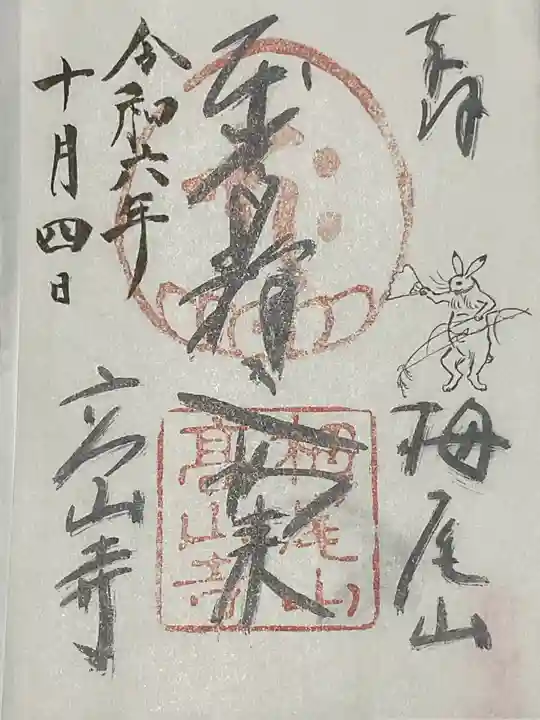 奉拝
栂尾山
如来
栂尾山
高山寺
令和六年
十月四日
高山寺